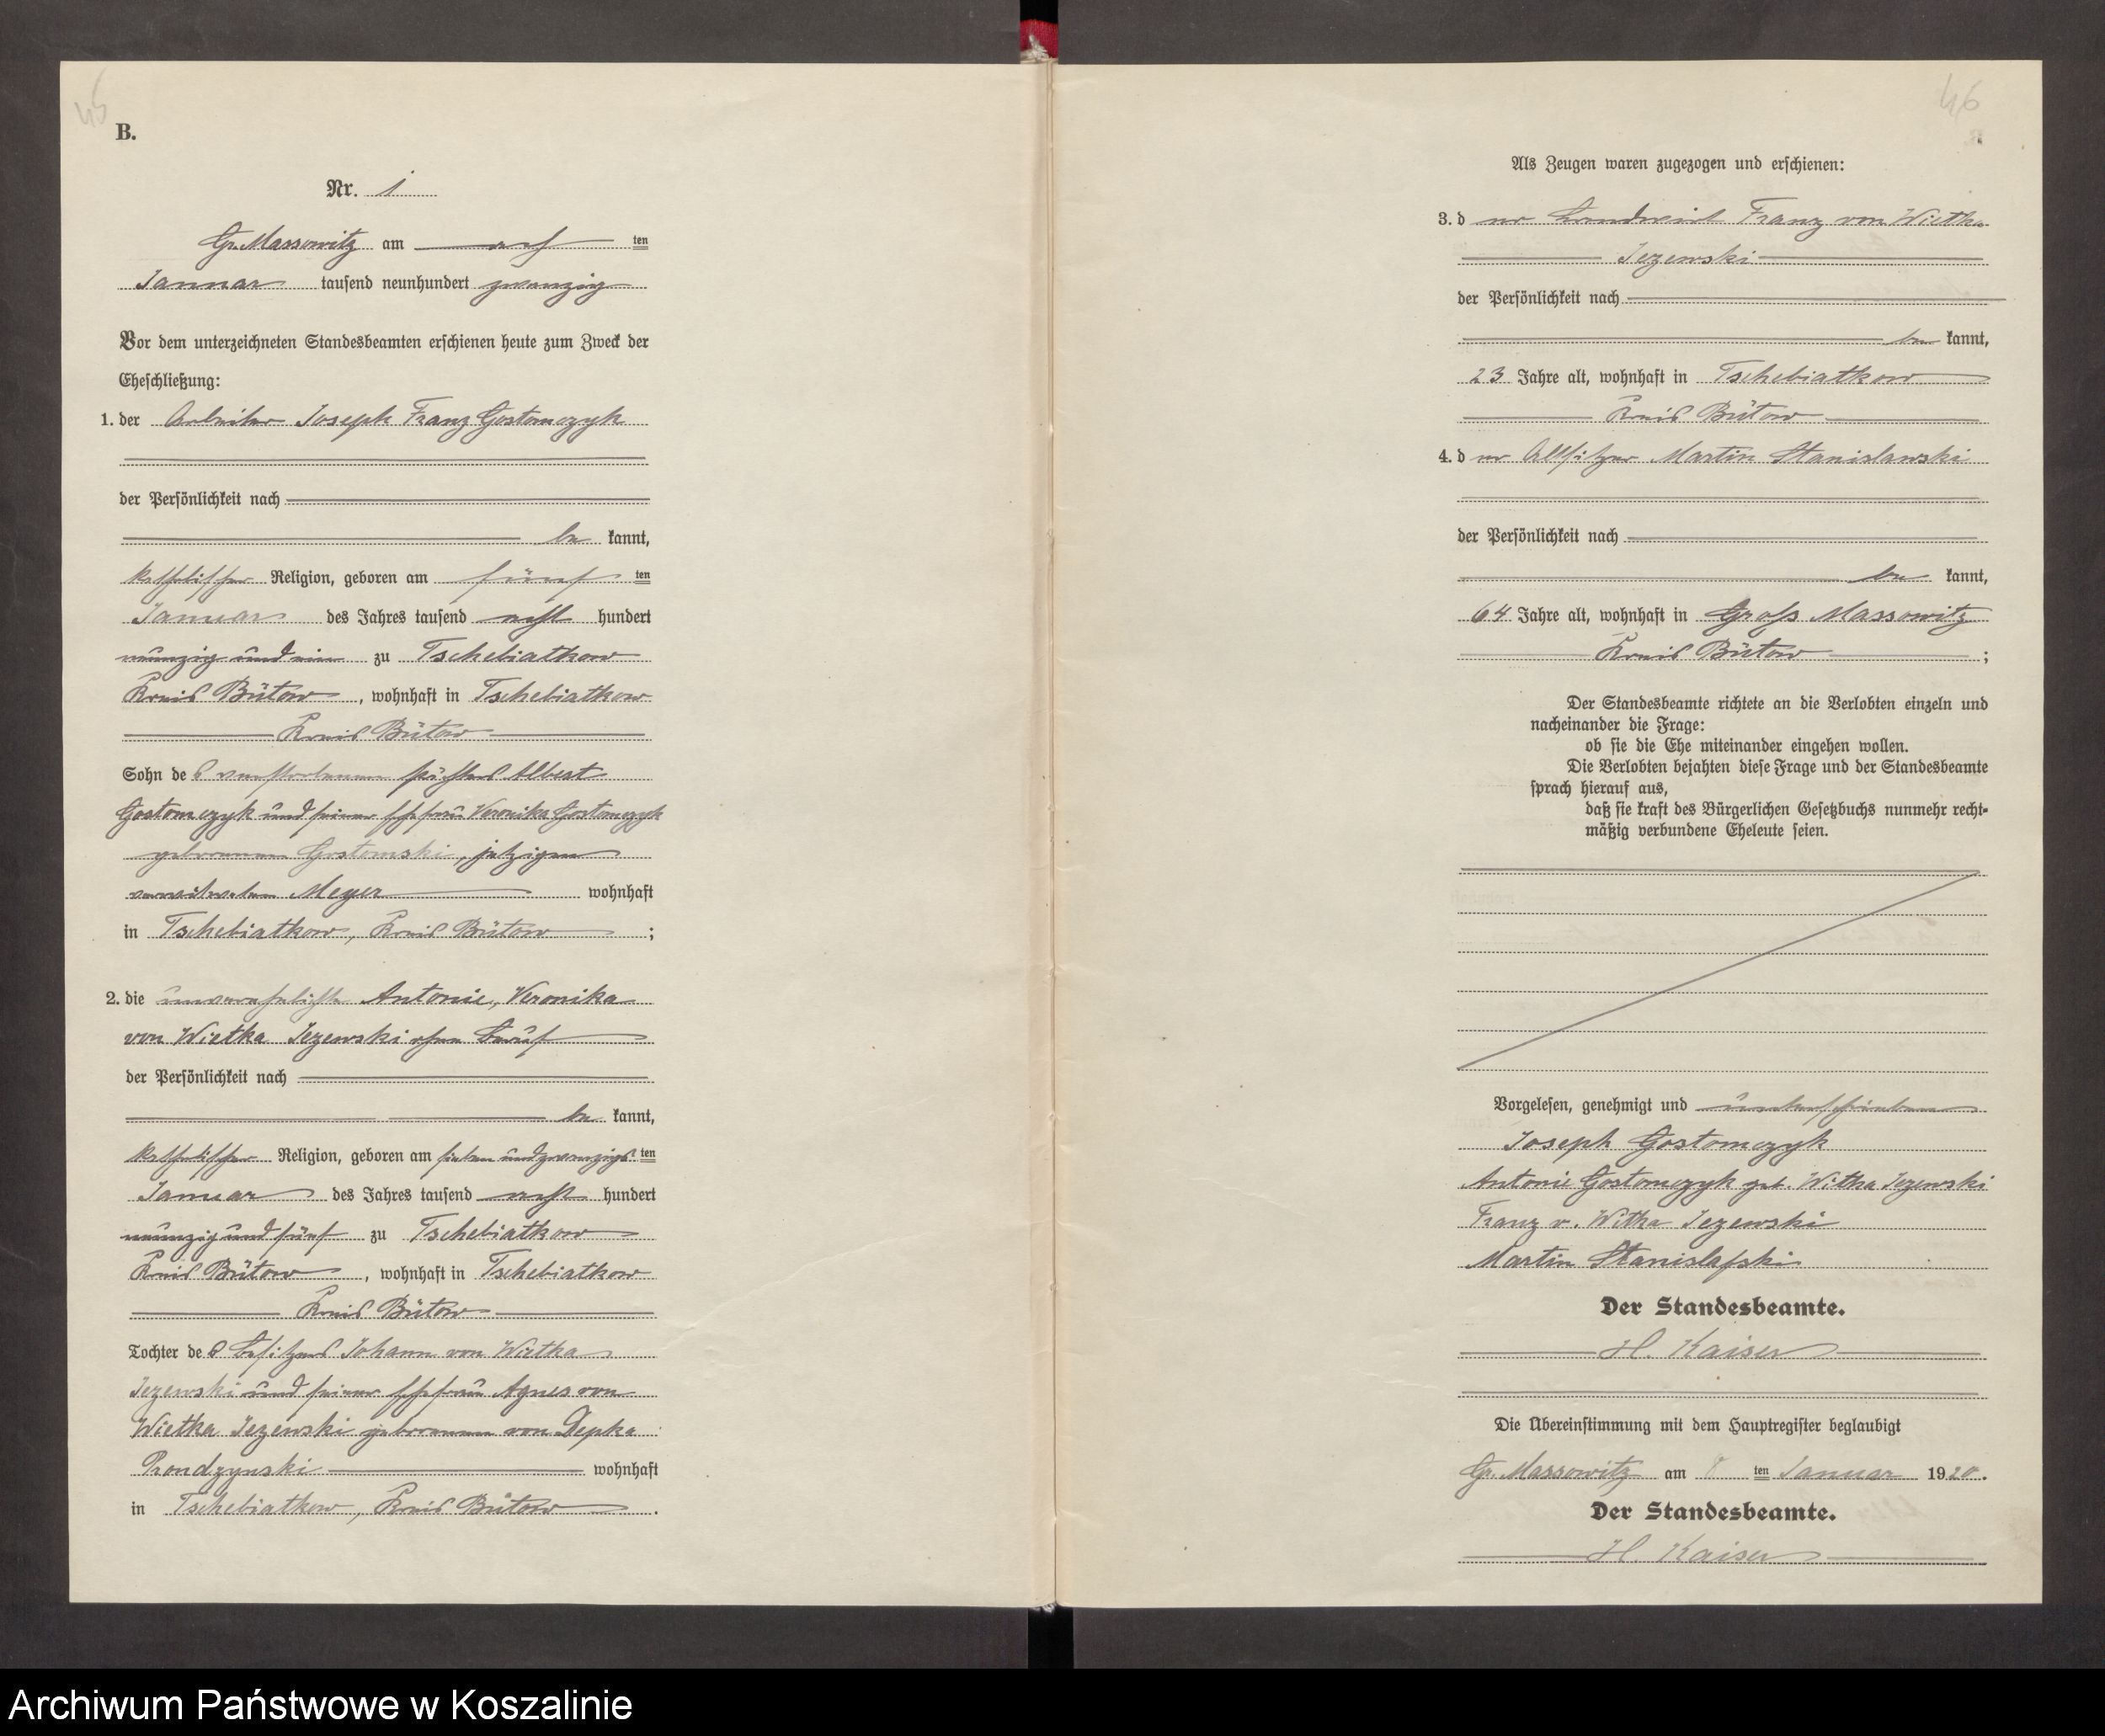 45
B.
Nr. 1
Gr. Massowitz am acht ten
Januar tausend neunhundert zwanzig
Vor dem unterzeichneten Standesbeamten erschienen heute zum Zweck der
Eheschließung:
1. der Arbeiter Joseph Franz Gostomczyk
der Persönlichkeit nach
be kannt,
katholischer Religion, geboren am fünf ten
Januar des Jahres tausend acht hundert
neunzig und ein zu Tschebiatkow
Kreis Bütow, wohnhaft in Tschebiatkow
Kreis Bütow
Sohn des verstorbenen Pächters Albert
Gostomczyk und seiner Ehefrau Veronika Gostomczyk
geborenen Gostomski, jetzigen
verwitweten Meyer wohnhaft
in Tschebiatkow, Kreis Bütow ;
2. die unverehelichte Antonie, Veronika
von Wietka Jezewski ohne Beruf
der Persönlichkeit nach
be kannt,
katholischer Religion, geboren am sieben und zwanzigs ten
Januar des Jahres tausend acht hundert
neunzig und fünf zu Tschebiatkow
Kreis Bütow, wohnhaft in Tschebiatkow
Kreis Bütow
Tochter des Besitzers Johann von Wietka
Jezewski und seiner Ehefrau Agnes von
Wietka Jezewski geborenen von Depka
Prondzynski wohnhaft
in Tschebiatkow, Kreis Bütow .
46
Als Zeugen waren zugezogen und erschienen:
3. der Landwirt Franz von Wietka
Jezewski
der Persönlichkeit nach
be kannt,
23 Jahre alt, wohnhaft in Tschebiatkow
Kreis Bütow
4. der Altsitzer Martin Stanislawski
der Persönlichkeit nach
be kannt,
64 Jahre alt, wohnhaft in Groß Massowitz
Kreis Bütow ;
Der Standesbeamte richtete an die Verlobten einzeln und
nacheinander die Frage:
ob sie die Ehe miteinander eingehen wollen.
Die Verlobten bejahten diese Frage und der Standesbeamte
sprach hierauf aus,
daß sie kraft des Bürgerlichen Gesetzbuchs nunmehr recht-
mäßig verbundene Eheleute seien.
Vorgelesen, genehmigt und unterschrieben
Joseph Gostomczyk
Antonie Gostomczyk geb. Witka Jezewski
Franz v. Witka Jezewski
Martin Stanislafski
Der Standesbeamte.
H. Kaiser
Die Übereinstimmung mit dem Hauptregister beglaubigt
Gr. Massowitz am 8 ten Januar 1920.
Der Standesbeamte.
H. Kaiser
Archiwum Państwowe w Koszalinie